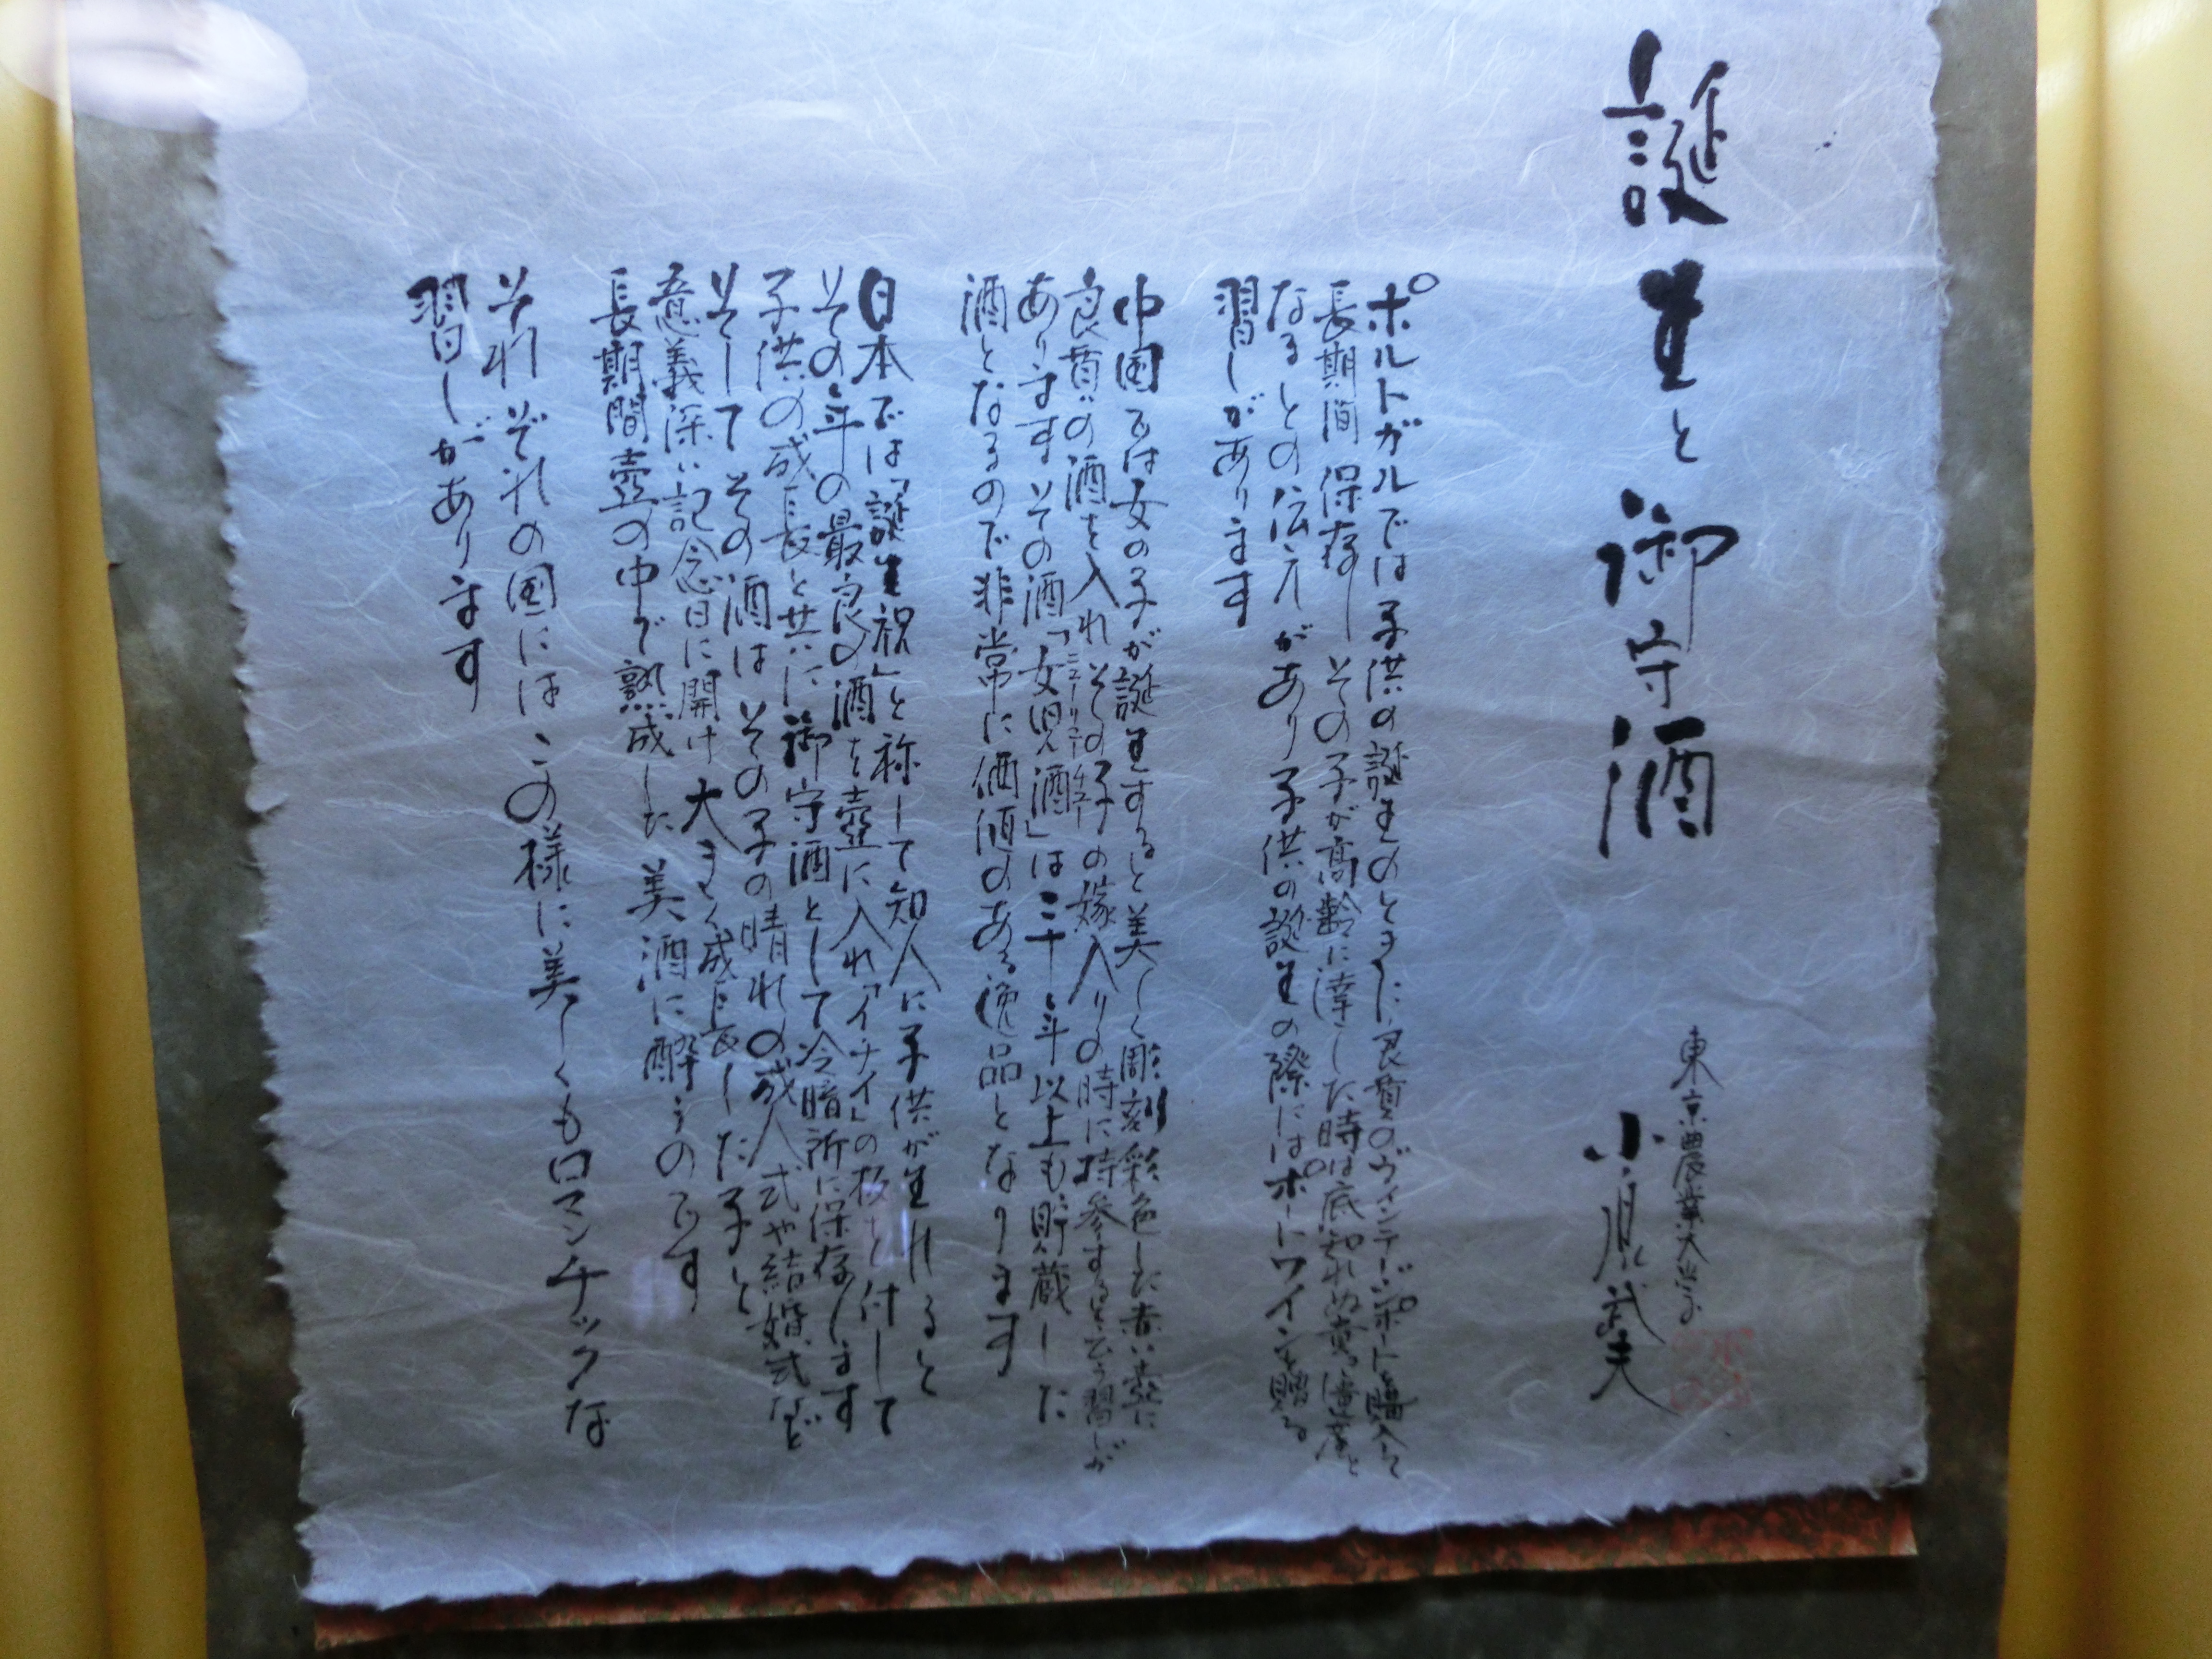 誕生と御守酒
東京農業大学
小泉武夫
ポルトガルでは子供の誕生のときに良質のヴィンテージポートを購入して
長期間保存し その子が高齢に達した時は底知れぬ 遺産と
なるとの伝えがあり子供の誕生の際にはポートワインを贈る
習しがあります
中国では女の子が誕生すると美しく彫刻彩色した 壺に
良質の酒を入れその子の嫁入りの時に持参すると云う習しが
あります その酒「女児酒」は三十年以上も貯蔵した
酒となるので非常に価値のある逸品となります
日本では「誕生祝」と称して知人に子供が生れると
その年の最良の酒を壺に入れ「イナイ」の板を付して
子供の成長と共に御守酒として冷暗所に保存します
そして その酒は その子の晴れの成人式や結婚式など
意義深い記念日に開け大きく成長した子と
長期間壺の中で熟成した美酒に酔うのです
それぞれの国にはこの様に美しくもロマンチックな
習しがあります